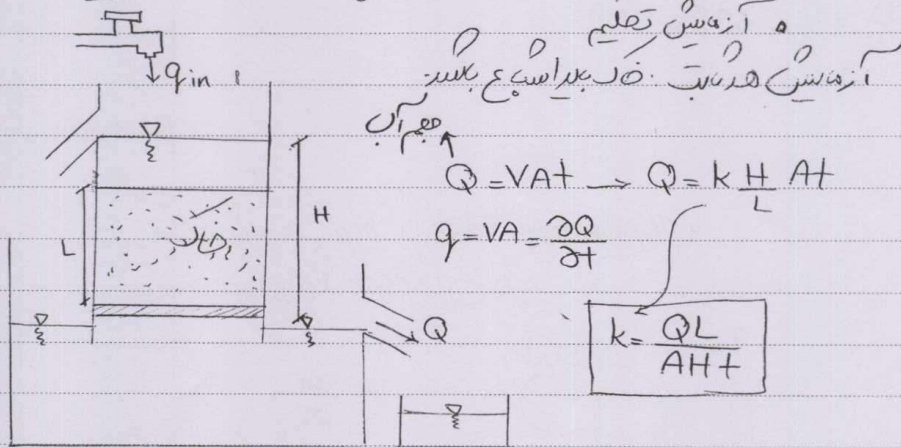 • آزمایش تحکیم
آزمایش هد ثابت . خاک باید اشباع باشد.
q in 1
حجم آب
Q = VAt → Q = k H/L At
q = VA = ∂Q/∂t
H
L
Q
k = QL/AHt